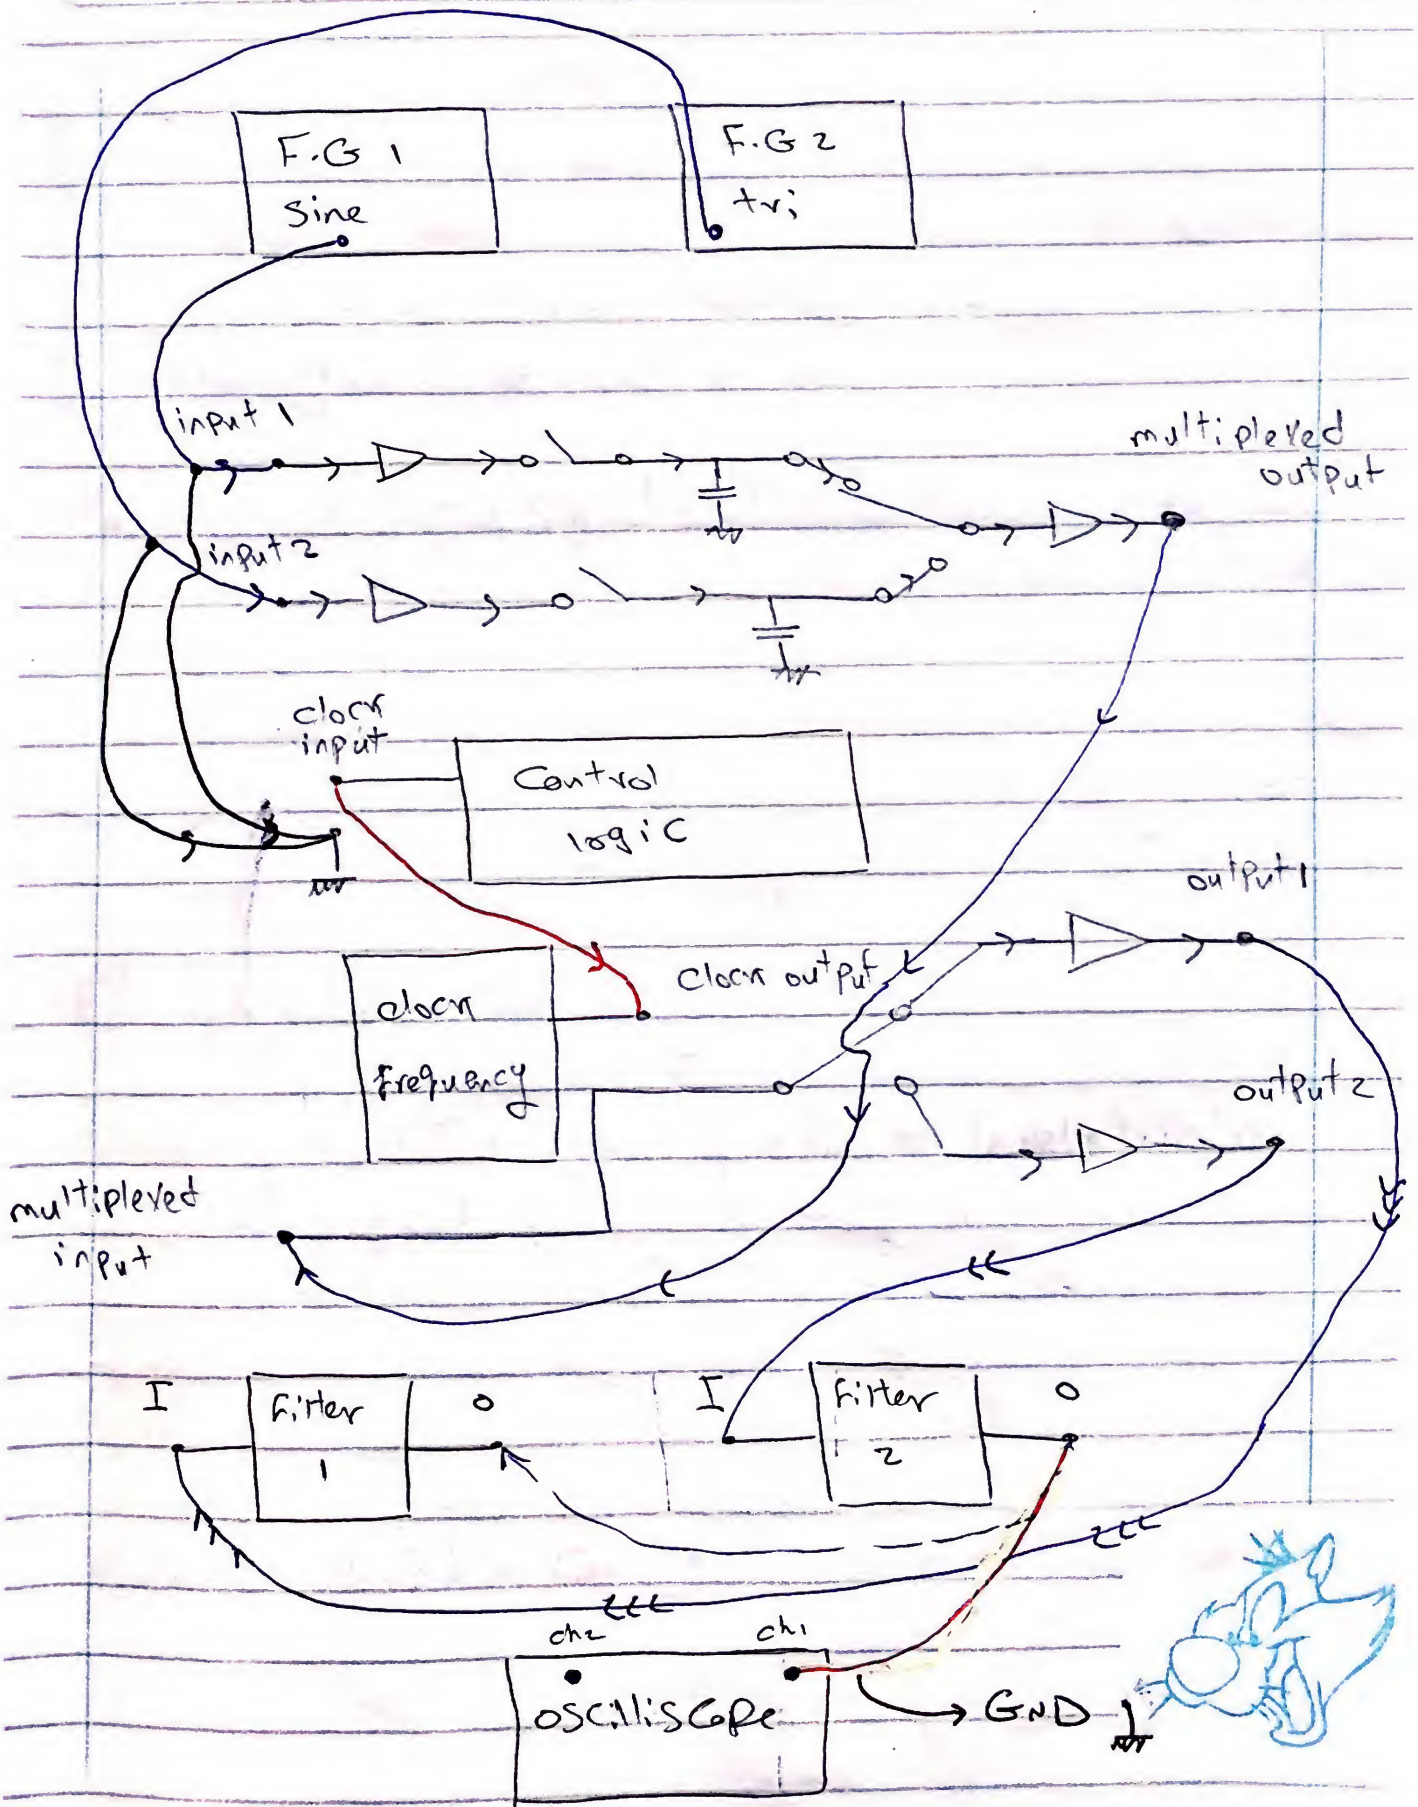 F.G 1
Sine
F.G 2
tri
input 1
multiplexed
output
input 2
clock
input
Control
logic
output 1
clock
frequency
Clock output
output 2
multiplexed
input
I
Filter
1
O
I
Filter
2
O
ch2
ch1
oscilliscope
GND